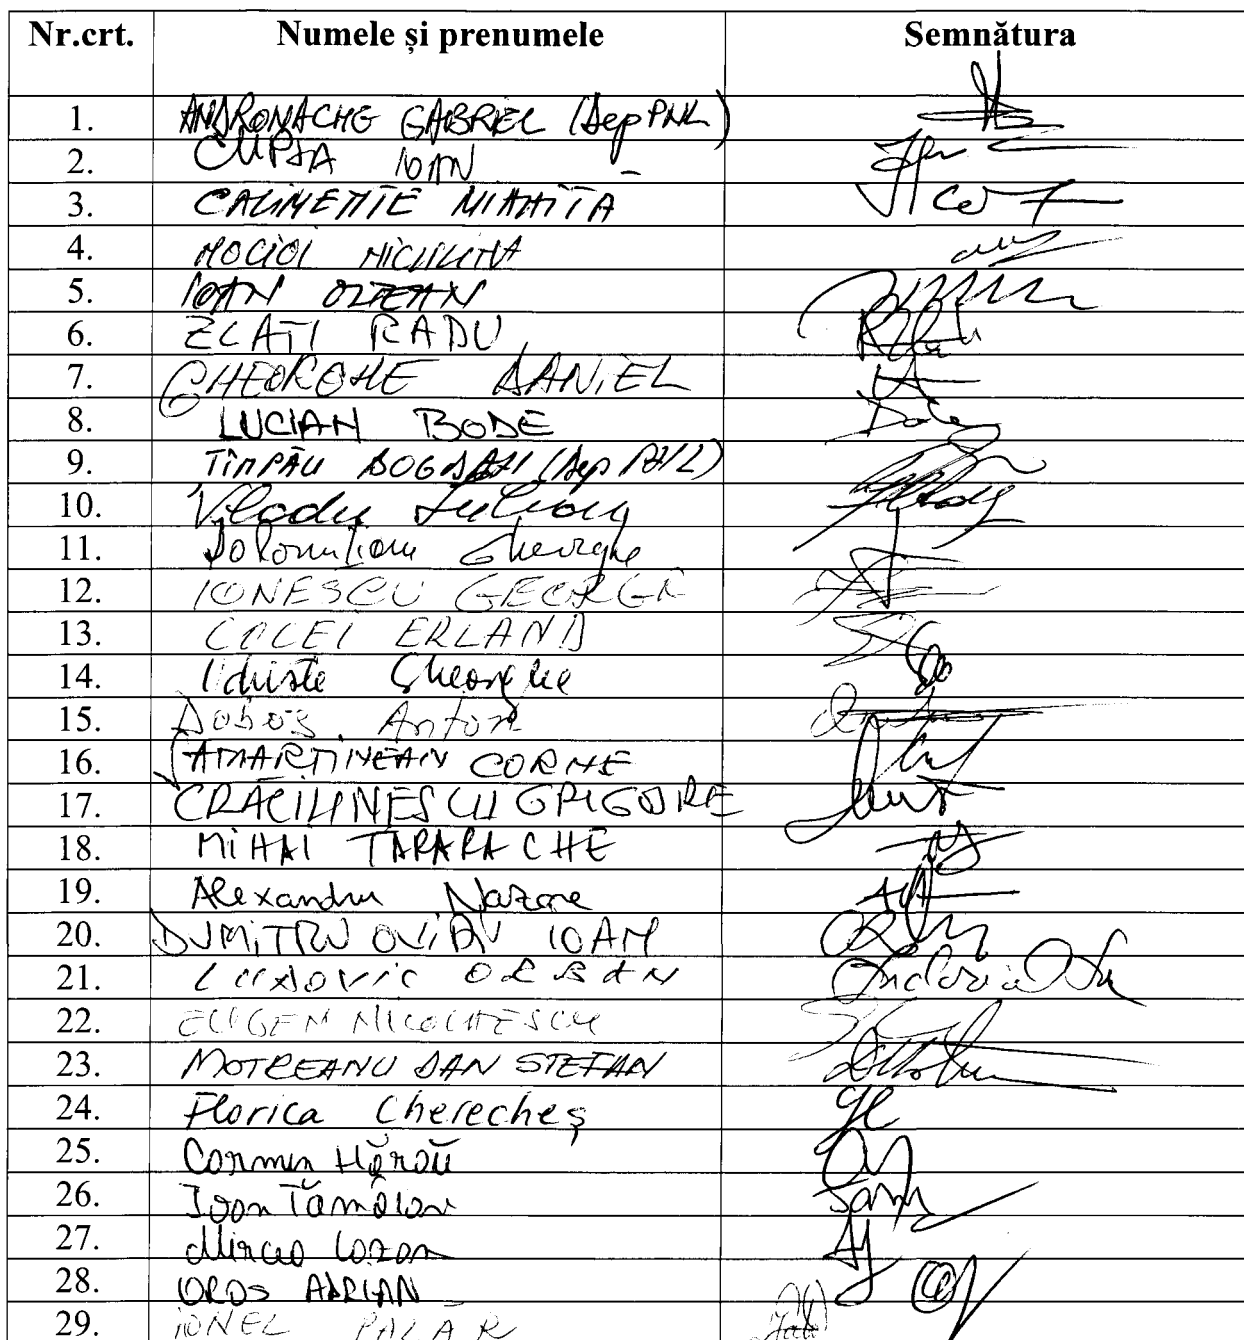 Nr.crt. Numele și prenumele Semnătura
1. ANDRONACHE GABRIEL (Dep PNL)
2. CUPȘA IOAN
3. CALIMENTE MIHĂIȚĂ
4. MOCIOI NICULINA
5. IOAN OLTEAN
6. ZLATI RADU
7. GHEORGHE DANIEL
8. LUCIAN BODE
9. TÎMPĂU BOGDAN (Dep PNL)
10. Vladu Iulian
11. Dolomițiu Gheorghe
12. IONESCU GEORGE
13. COCEI ERLAND
14. Udriște Gheorghe
15. Doboș Anton
16. SĂMĂRTINEAN CORNE
17. CRĂCIUNESCU GRIGORE
18. MIHAI TARARACHE
19. Alexandru Nazare
20. DUMITRU OVIDIU IOAN
21. LUDOVIC ORBAN
22. EUGEN NICOLAESCU
23. MOTREANU DAN STEFAN
24. Florica Cherecheș
25. Cornmen Hărău
26. Ioan Tămâian
27. Mircea Cazan
28. OROS ADRIAN
29. IONEL PALĂR